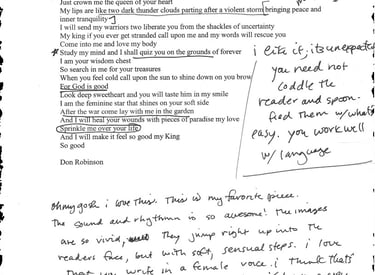 Just crown me the queen of your heart
My lips are like two dark thunder clouds parting after a violent storm bringing peace and
inner tranquility
I will send my warriors two liberate you from the shackles of uncertainty
My king if you ever get stranded call upon me and my words will rescue you
Come into me and love my body
Study my mind and I shall quiz you on the grounds of forever
I am your wisdom chest
So search in me for your treasures
When you feel cold call upon the sun to shine down on you brow
For God is good
Look deep sweetheart and you will taste him in my smile
I am the feminine star that shines on your soft side
After the war come lay with me in the garden
And I will heal your wounds with pieces of paradise my love
Sprinkle me over your life
And I will make it feel so good my King
So good
Don Robinson
i like it, its unexpected
you need not
coddle the
reader and spoon
feed them w/ what's
easy. you work well
w/ language
oh my gosh i love this. This is my favorite piece.
The sound and rhythm is so awesome! The images
are so vivid, They jump right up into the
readers face, but with soft, sensual steps. i love
that you write in a female voice. i think thats